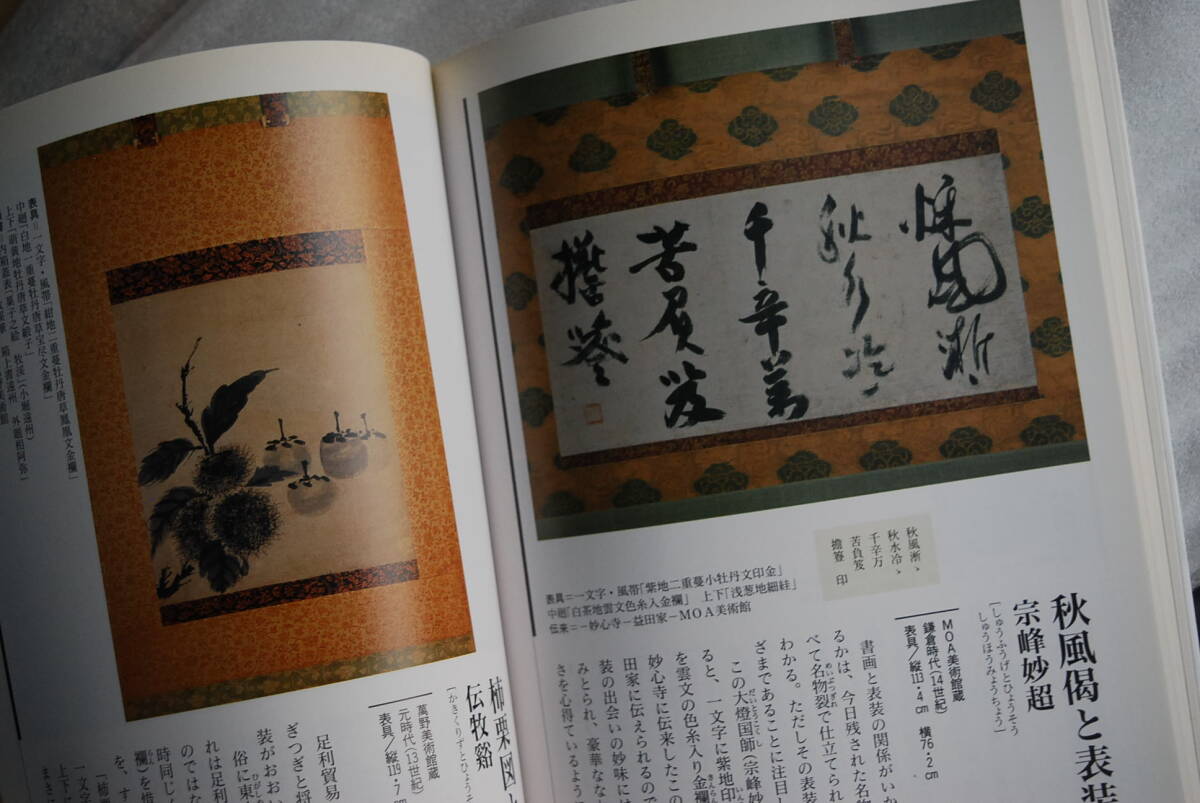 秋風偈と表装
[しゅうふうげとひょうそう
宗峰妙超
しゅうほうみょうちょう]
MOA美術館蔵
鎌倉時代(14世紀)
表具/縦113・4cm 横76・2cm
秋風漸〻
秋水冷〻
千辛万
苦負笈
擔簦 印
表具=一文字・風帯「紫地二重蔓小牡丹文印金」
中廻「白茶地雲文色糸入金襴」 上下「浅葱地細絓」
伝来=－妙心寺－益田家－MOA美術館
書画と表装の関係がいか
るかは、今日残された名物
べて名物裂で仕立てられ
わかる。ただしその表装
ざまであることに注目し
この大燈国師(宗峰妙
ると、一文字に紫地印
を雲文の色糸入り金襴
妙心寺に伝来したこの
田家に伝えられるので
装の出会いの妙味には
みとられ、豪華なな
さを心得ているよう
柿栗図
[かきくりずとひょうそ
伝牧谿
萬野美術館蔵
元時代(13世紀)
表具/縦119・7cm
足利貿易
ぎつぎと将
装がおおい
俗に東
れは足利
のではな
時同じく
襴)を惜
を、す
「柿
一文字
上下
まさ
表具=一文字・風帯「紺地二重蔓牡丹唐草鳳凰文金襴」
中廻「白地一重蔓牡丹唐草宝尽文金襴」
上下「萌黄地牡丹唐草文緞子」
内箱蓋表「菓子之絵 牧渓」(小堀遠州)
箱上書遠州 外題相阿弥